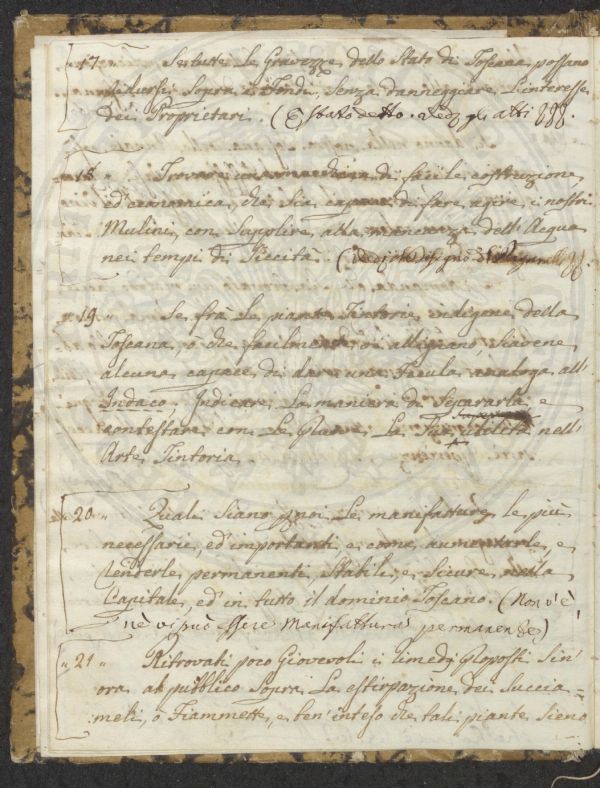 17. Se tutte le Gravezze dello Stato di Toscana possano
ridursi sopra i Fondi, senza danneggiare l'interesse
dei Proprietari. (È stato detto. gli atti
18. Trovare una macchina di facile costruzione,
ed' economica, che sia capace di fare agire i nostri
Mulini, con supplire alla mancanza dell'Acqua
nei tempi di Siccità.
19. " Se frà le piante Tintorie indigene della
Toscana, o che facilmente vi allignano, siavene
alcuna capace di dare una Fecula analoga all'
Indaco; Indicare la maniera di Separarla e
contestare con le Prove la Sua utilità nell'
Arte Tintoria.
20 " Quali siano p noi le manifatture le più
necessarie, ed' importanti e come aumentarle, e
renderle permanenti, stabili, e sicure nella
Capitale, ed' in tutto il dominio Toscano. (Non v'è,
nè vi può essere Manifattura permanente)
" 21 " Ritrovati poco Giovevoli i rimedj proposti sin'
ora al pubblico sopra la estirpazione dei Succia=
meli, o Fiammette, e ben' inteso che tali piante sieno